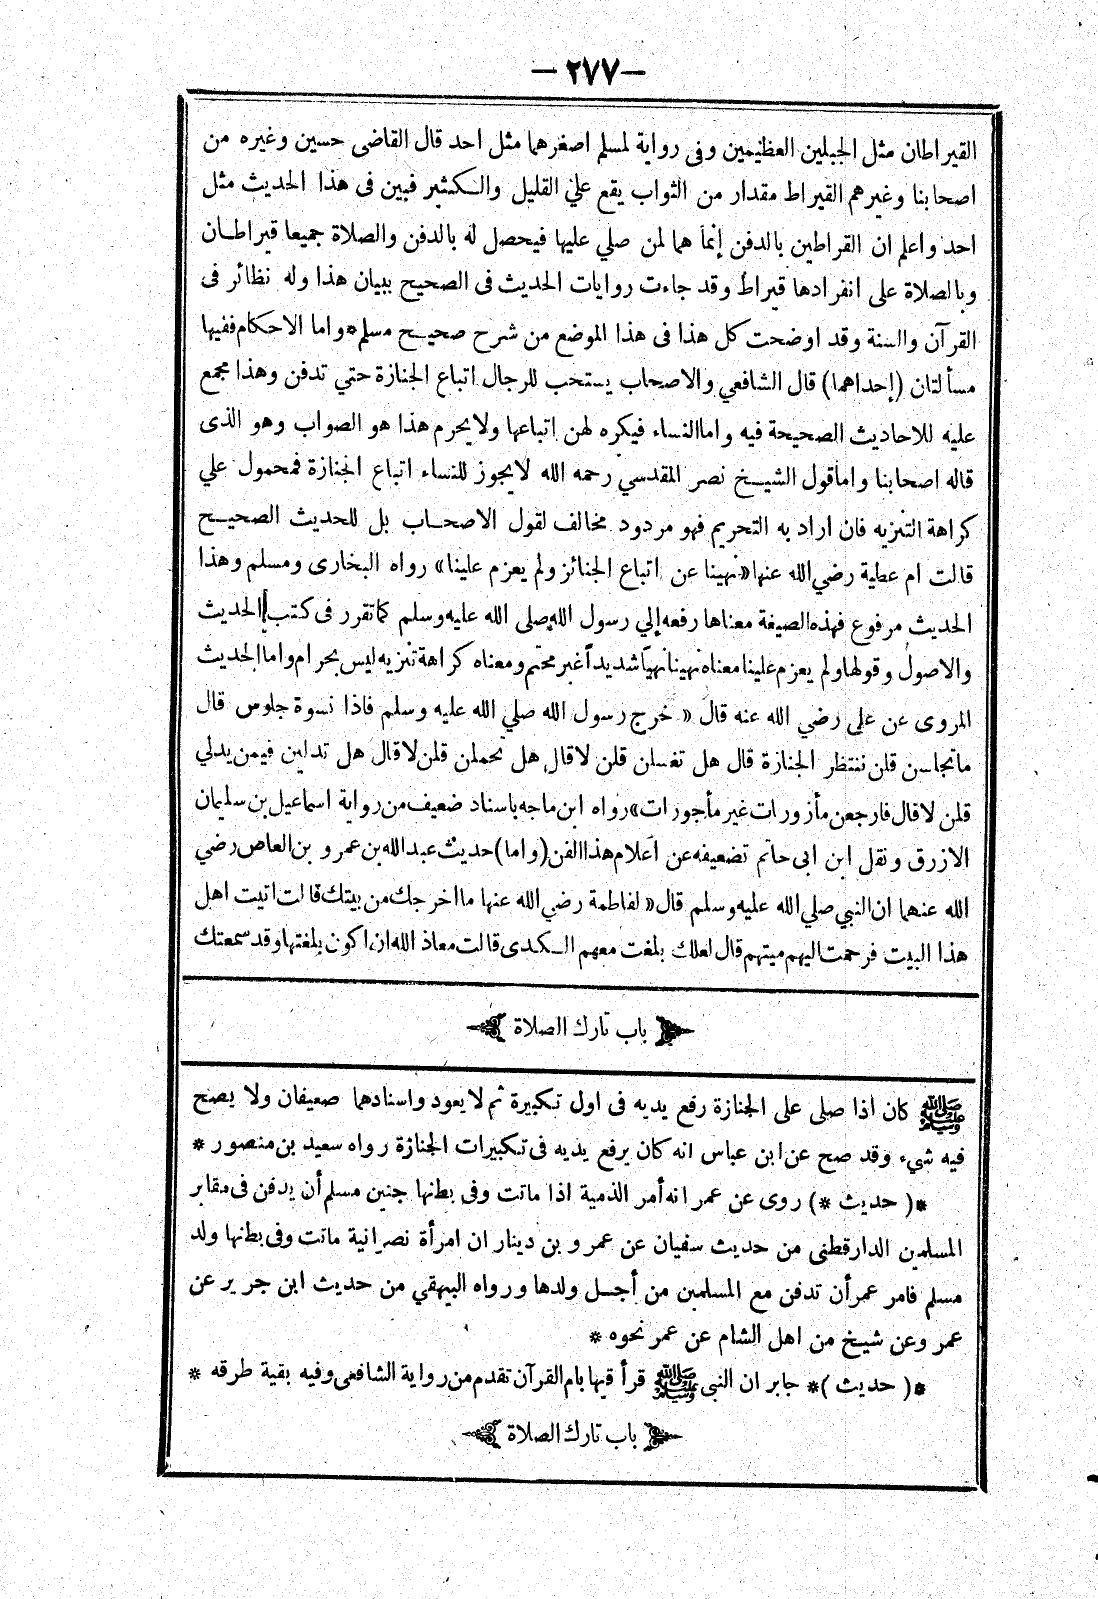 — ٢٧٧ —
القيراطان مثل الجبلين العظيمين وفى رواية لمسلم اصغرهما مثل احد قال القاضى حسين وغيره من
اصحابنا وغيرهم القيراط مقدار من الثواب يقع علي القليل والكثير فبين فى هذا الحديث مثل
احد واعلم ان القراطين بالدفن إنما هما لمن صلي عليها فيحصل له بالدفن والصلاة جميعا قيراطان
وبالصلاة على انفرادها قيراط وقد جاءت روايات الحديث فى الصحيح ببيان هذا وله نظائر فى
القرآن والسنة وقد اوضحت كل هذا فى هذا الموضع من شرح صحيح مسلم * واما الاحكام ففيها
مسألتان (إحداهما) قال الشافعي والاصحاب يستحب للرجال اتباع الجنازة حتي تدفن وهذا مجمع
عليه للاحاديث الصحيحة فيه واما النساء فيكره لهن اتباعها ولا يحرم هذا هو الصواب وهو الذى
قاله اصحابنا واما قول الشيخ نصر المقدسي رحمه الله لا يجوز للنساء اتباع الجنازة فمحمول علي
كراهة التنزيه فان اراد به التحريم فهو مردود مخالف لقول الاصحاب بل للحديث الصحيح
قالت ام عطية رضي الله عنها «نهينا عن اتباع الجنائز ولم يعزم علينا» رواه البخارى ومسلم وهذا
الحديث مرفوع فهذه الصيغة معناها رفعه إلي رسول الله صلى الله عليه وسلم كما تقرر فى كتب الحديث
والاصول وقولها ولم يعزم علينا معناه نهينا نهيا شديداً غير محتم ومعناه كراهة تنزيه ليس بحرام واما الحديث
المروى عن على رضي الله عنه قال « خرج رسول الله صلي الله عليه وسلم فاذا نسوة جلوس قال
ما تجلسن قلن ننتظر الجنازة قال هل تغسلن قلن لا قال هل تحملن قلن لا قال هل تدلين فيمن يدلي
قلن لا قال فارجعن مأزورات غير مأجورات» رواه ابن ماجه باسناد ضعيف من رواية اسماعيل بن سليمان
الازرق ونقل ابن ابى حاتم تضعيفه عن أعلام هذا الفن (واما) حديث عبد الله بن عمرو بن العاص رضي
الله عنهما ان النبي صلي الله عليه وسلم قال « لفاطمة رضي الله عنها ما اخرجك من بيتك قالت اتيت اهل
هذا البيت فرحمت اليهم ميتهم قال لعلك بلغت معهم الكدى قالت معاذ الله ان اكون بلغتها وقد سمعتك
باب تارك الصلاة
ﷺ كان اذا صلى على الجنازة رفع يديه فى اول تكبيرة ثم لا يعود واسنادهما ضعيفان ولا يصح
فيه شيء وقد صح عن ابن عباس انه كان يرفع يديه فى تكبيرات الجنازة رواه سعيد بن منصور *
*( حديث *) روى عن عمر انه أمر الذمية اذا ماتت وفى بطنها جنين مسلم أن يدفن فى مقابر
المسلمين الدارقطنى من حديث سفيان عن عمرو بن دينار ان امرأة نصرانية ماتت وفى بطنها ولد
مسلم فامر عمر أن تدفن مع المسلمين من أجل ولدها ورواه البيهقي من حديث ابن جرير عن
عمر وعن شيخ من اهل الشام عن عمر نحوه *
*( حديث )* جابر ان النبى ﷺ قرأ فيها بام القرآن تقدم من رواية الشافعى وفيه بقية طرقه *
باب تارك الصلاة